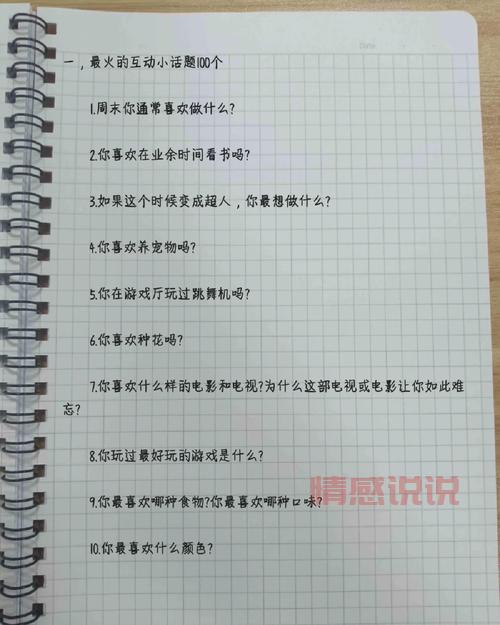 Date.
一，最火的互动小话题100个
1.周末你通常喜欢做什么?
2.你喜欢在业余时间看书吗?
3.如果这个时候变成超人，你最想做什么?
4.你喜欢养宠物吗?
5.你在游戏厅玩过跳舞机吗?
6.你喜欢种花吗?
7.你喜欢什么样的电影和电视?为什么这部电视或电影让你如此难
忘?
8.你玩过最好玩的游戏是什么?
情感说说
9.你最喜欢哪种食物?你最喜欢哪种口味?
10.你最喜欢什么颜色?